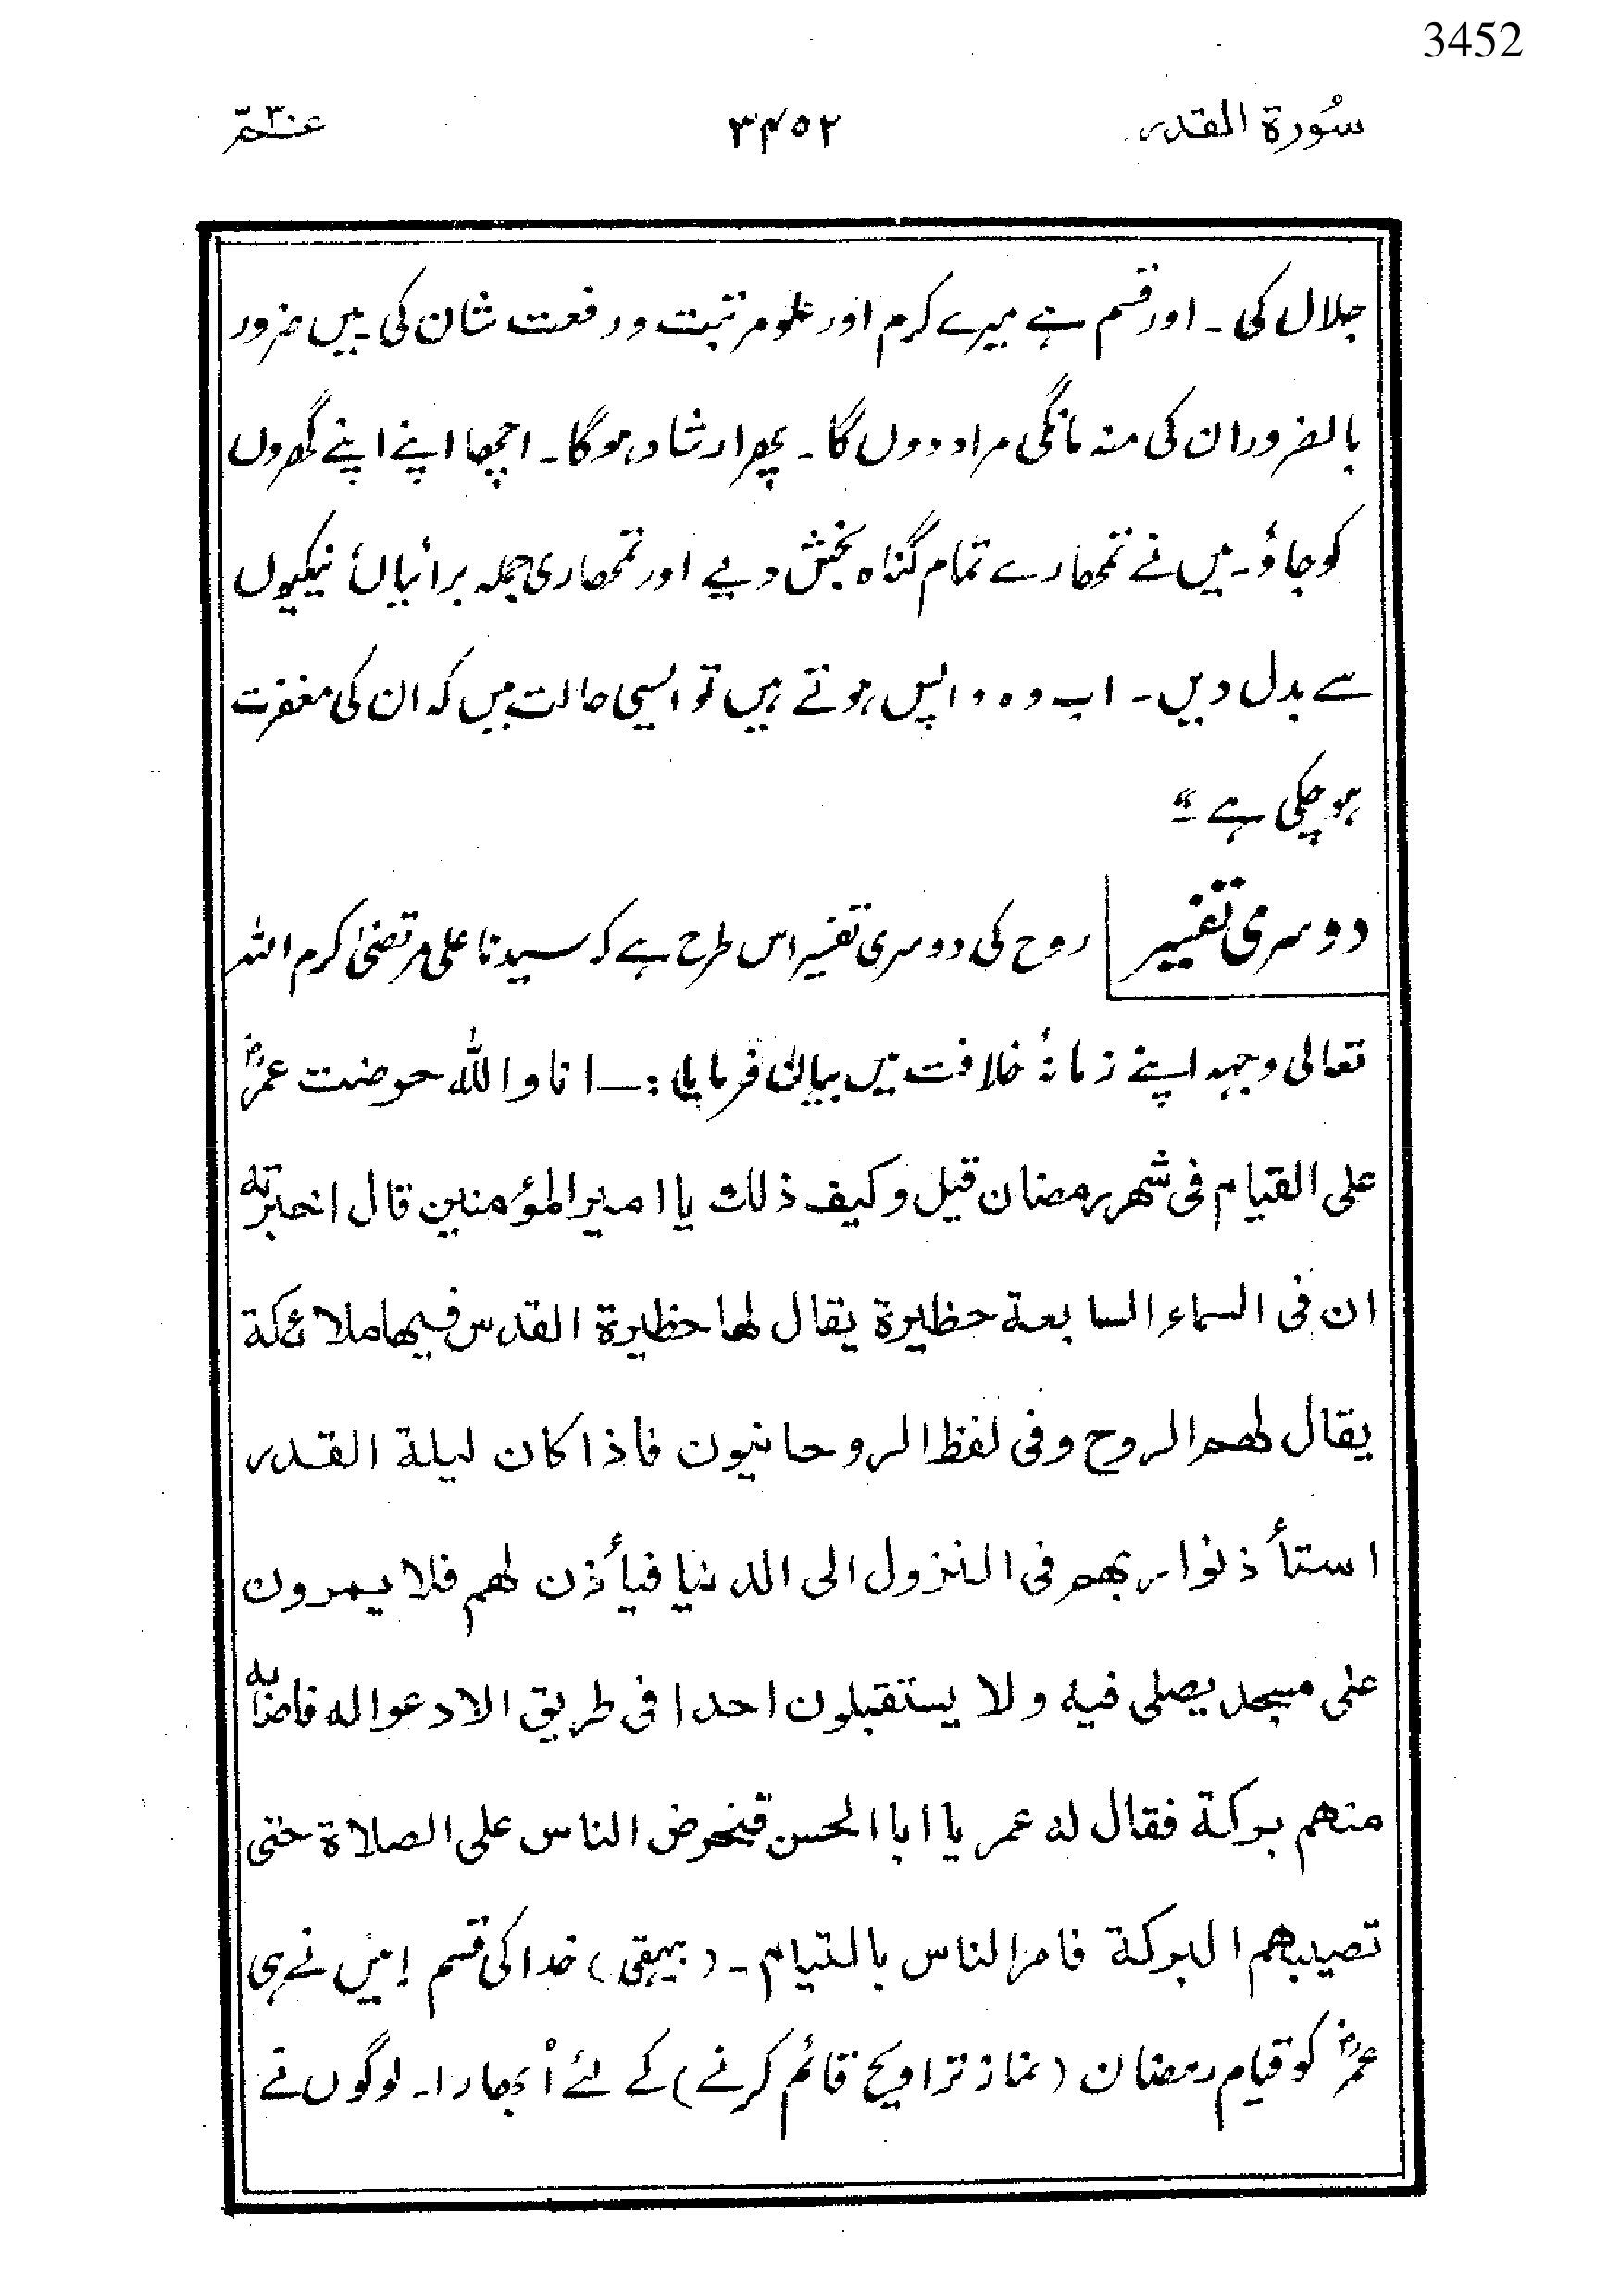 3452
سُورة القدر ۳۴۵۲ عمّ ۳۰
جلال کی ۔ اور قسم ہے میرے کرم اور علو مرتبت و رفعت شان کی ۔ میں ضرور
بالضرور ان کی منہ مانگی مراد دوں گا ۔ پھر ارشاد ہوگا ۔ اچھا اپنے اپنے گھروں
کو جاؤ ۔ میں نے تمھارے تمام گناہ بخش دیے اور تمھاری جملہ برائیاں نیکیوں
سے بدل دیں ۔ اب وہ واپس ہوتے ہیں تو ایسی حالت میں کہ ان کی مغفرت
ہو چکی ہے "
دوسری تفسیر روح کی دوسری تفسیر اس طرح ہے کہ سیدنا علی مرتضیٰ کرم اللہ
تعالی وجہہ اپنے زمانۂ خلافت میں بیان فرمایا :۔ انا و اللہ حرضت عمرؓ
علی القیام فی شهر رمضان قیل و کیف ذلك یا امیر المؤمنین قال اخبرته
ان فی السماء السابعة حظیرة یقال لها حظیرة القدس فیها ملائكة
یقال لهم الروح وفی لفظ الروحانیون فاذا کان لیلة القدر
استأذنوا ربهم فی النزول الی الدنیا فیأذن لهم فلا یمرون
علی مسجد یصلی فیه ولا یستقبلون احدا فی طریق الا دعوا له فاصابه
منهم برکة فقال له عمر یا ابا الحسن فنحرض الناس علی الصلاة حتی
تصیبهم البرکة فامر الناس بالقیام ۔ (بیہقی) خدا کی قسم ! میں نے ہی
عمرؓ کو قیام رمضان (نماز تراویح قائم کرنے) کے لئے اُبھارا ۔ لوگوں نے